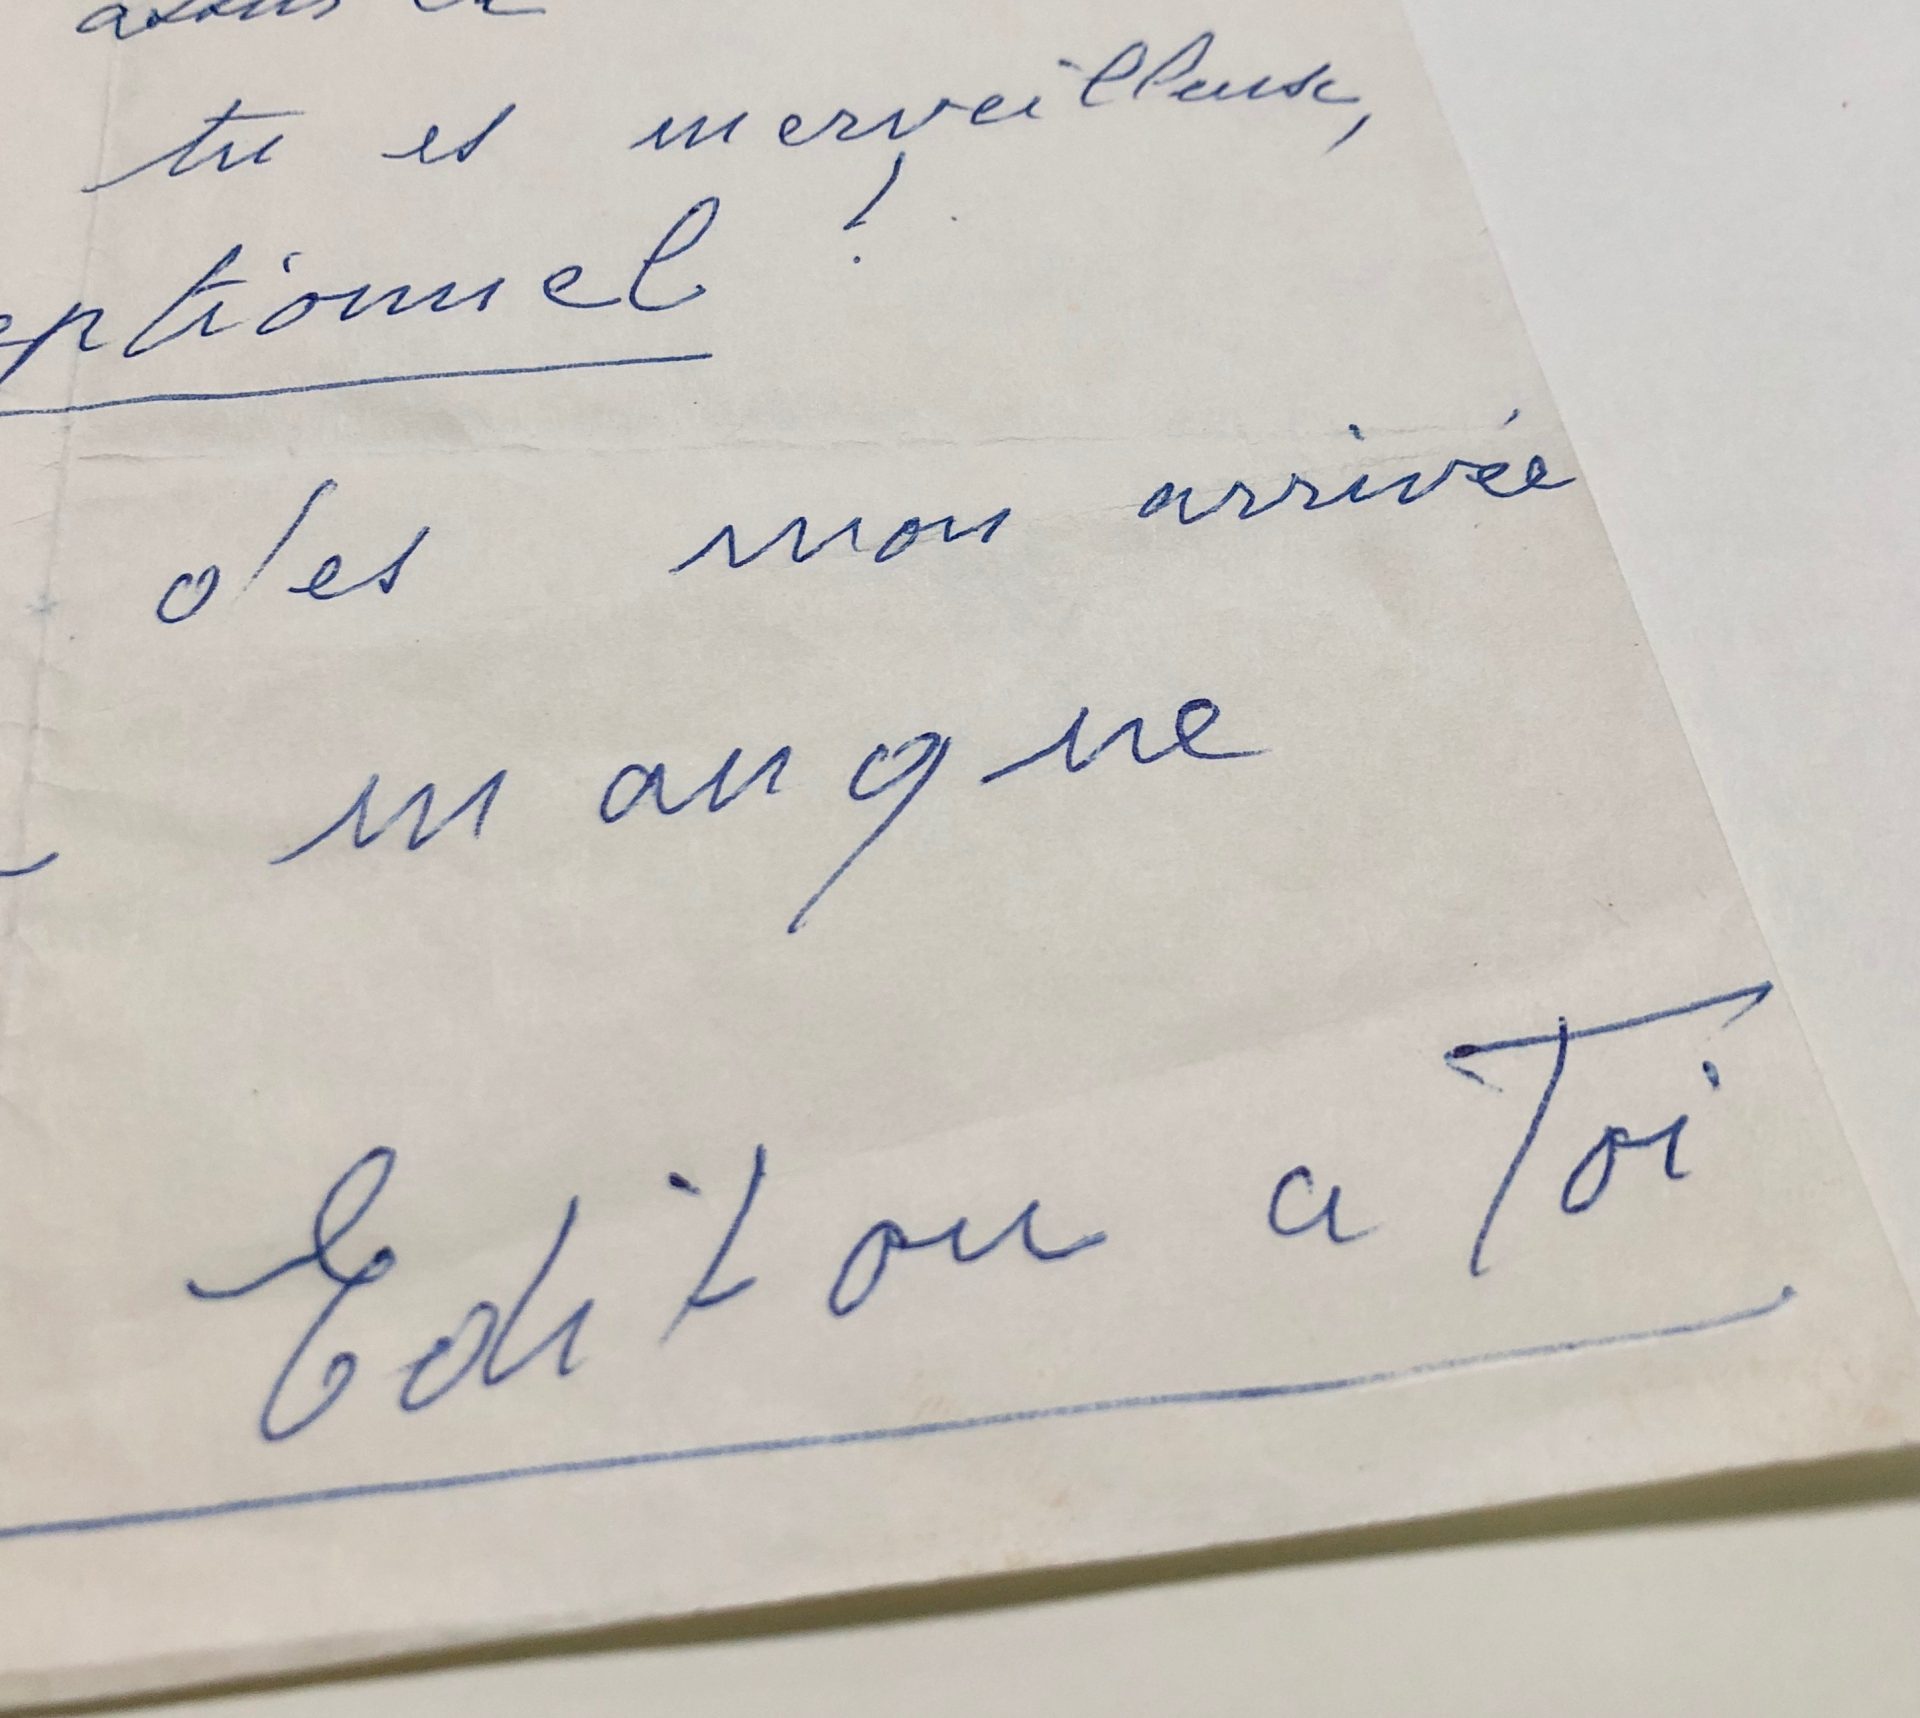 tu es merveilleuse,
eptionnel !
des mon arrivée
manque
Editou a Toi